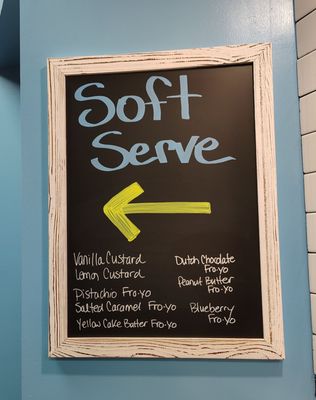 Soft
Serve
Vanilla Custard
Lemon Custard
Pistachio Fro-Yo
Salted Caramel Fro-Yo
Yellow Cake Batter Fro-Yo
Dutch Chocolate
Fro-Yo
Peanut Butter
Fro-Yo
Blueberry
Fro-Yo